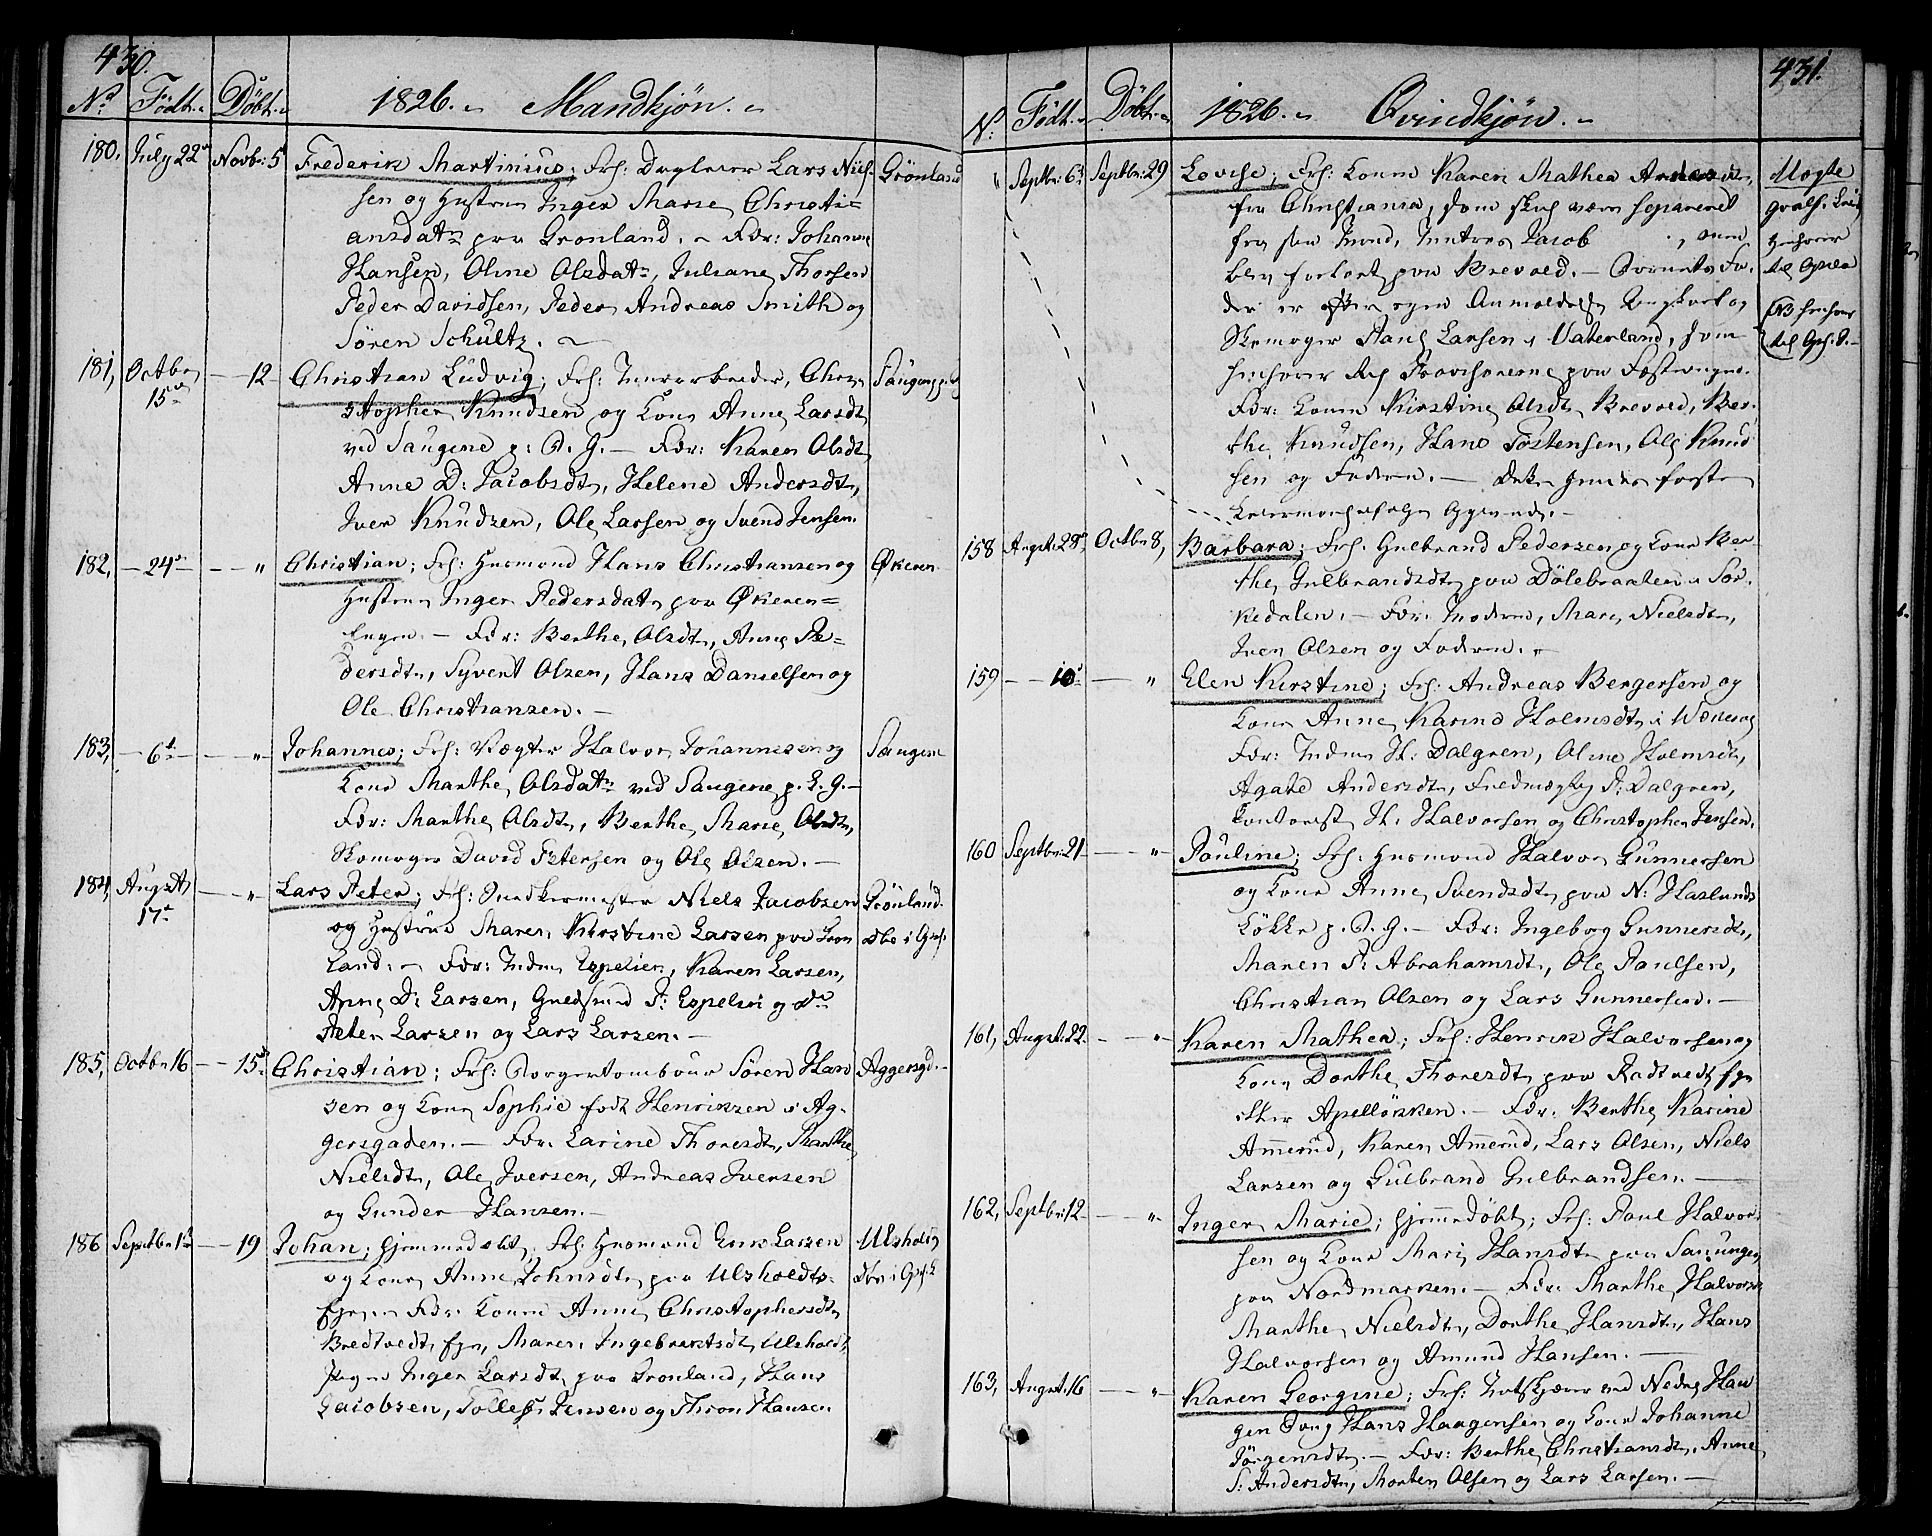 430.
No Födt. Döbt. 1826. Mandkjön.
180. July 22de Novbr: 5 Frederik Martinius; Frs: Dagleier Lars Niel- Grönland
sen og Hustrue Inger Marie Christi=
ansdatr paa Grønland. Fdr: Johanne
Hansen, Oline Olsdatr, Juliane Thorsen
Peder Davidsen, Peder Andreas Smith og
Sören Schultz.
181, Octbr 15de 12 Christian Ludvig; Frs: Chri-
stopher Knudsen og Kone Anne Larsdt
ved Saugene p: O. G. Fdr: Karen Olsdt,
Anne D: Jacobsdt, Helene Andersdtr,
Iver Knudzen, Ole Larsen og Svend Jensen.
182, 24de " Christian; Frs: Husmand Hans Christiansen og Økeren
Hustrue Inger Pedersdatr paa Økeren=
Engen. Fdr: Berthe Olsdt, Anne Pe=
dersdtr, Syvert Olsen, Hans Danielsen og
Ole Christiansen.
183, 6te " Johannes; Frs: Vægter Halvor Johannesen og Saugene
Kone Marthe Olsdatr ved Saugene p. E. G.
Fdr: Marthe Olsdt, Berthe Marie Olsdtr,
Skomager David Petersen og Ole Olsen.
184, August 17de " Lars Peter; Frs: Snedkermester Niels Jacobsen Grönland
og Hustrue Maren Kirstine Larsen paa Grøn
land. Fdr: Espelien, Karen Larsen,
Anne D: Larsen, P: Espelin og
Peter Larsen og Lars Larsen.
185, Octbr 16 15de Christian; Frs: Borgertambour Sören Han Aggersgd.
sen og Kone Sophie født Henriksen i Ag-
gersgaden. Fdr. Larine Thoresdt, Marthe
Nielsdtr, Ole Iversen, Andreas Iversen
og Gunder Hansen.
186 Septbr 1ste 19 Johan; hjemmedøbt; Frs: Husmand Lars Larsen Ulsholdt
og Kone Anne Johnsdt paa Ulsholdts-
Fdr: Konen Anne Christophersdt
Bredtvedt, Maren Ingebretsdt Ulsholdt,
Pigen Inger Larsdt paa Grønland, Hans
Jacobsen, Tollef Jensen og Thron Hansen
431.
N: Födt. Döbt. 1826. Qvindkjön.
" Septbr: 6te Septbr: 29 Lovise; Frs: Konen Karen Mathea Andersdt,
fra Christiania, som skal være separeret
fra sin Mand, Jacob , som
blev paa Brevold. Barnets Fa-
der er efter egen Anmeldelse Ungkarl og
Skomager Paul Larsen i Vaterland, som
paa
Fdr: Konen Kirstine Olsdt Brevold, Ber-
the Knudsen, Hans Tostensen, Ole Knud
sen og Faderen. Dette
158 Augst: 28de, Octbr: 8, Barbara; Frs. Gulbrand Pedersen og Kone Ber-
the Gulbrandsdt paa Dölebraaten i Sör-
kedalen. Fdr: Moderen, Mari Nielsdtr,
Iver Olsen og Faderen.
159 10de " Elen Kirstine; Frs: Andreas Bergersen og
Kone Anne Karine Holmsdt i
Fdr: H: Dalgren, Oline Holmsdt,
Agate Andersdt, P: Dalgren,
H. Halvorsen og Christopher Jensen.
160 Septbr: 21 " Pauline; Frs: Husmand Halvor Gunnersen
og Kone Anne Svendsdt paa N: Haslunds
Lökke p. O. G. Fdr: Ingeborg Gunnersdt,
Maren P: Abrahamsdt, Ole Paulsen,
Christian Olsen og Lars Gunnersen.
161, Augst: 22. " Karen Mathea; Frs: Henrik Halvorsen og
Kone Dorthe Thoresdt paa Radtvedt
Apellökken. Fdr: Berthe Karine
Ammerud, Karen Ammerud, Lars Olsen, Niels
Larsen og Gulbrand Gulbrandsen.
162, Septbr: 12 " Inger Marie; hjemmedöbt; Frs: Poul Halvor-
sen og Kone Mari Hansdt paa
paa Nordmarken. Fdr: Marthe Halvorsdt
Marthe Nielsdtr, Dorthe Hansdtr, Hans
Halvorsen og Amund Hansen.
163, Augst: 16 " Karen Georgine; Frs: ved Nedre Hau
gen Hans Haagensen og Kone Johanne
Jörgensdtr. Fdr: Berthe Christiansdt, Anne
S: Andersdtr, Morten Olsen og Lars Larsen.